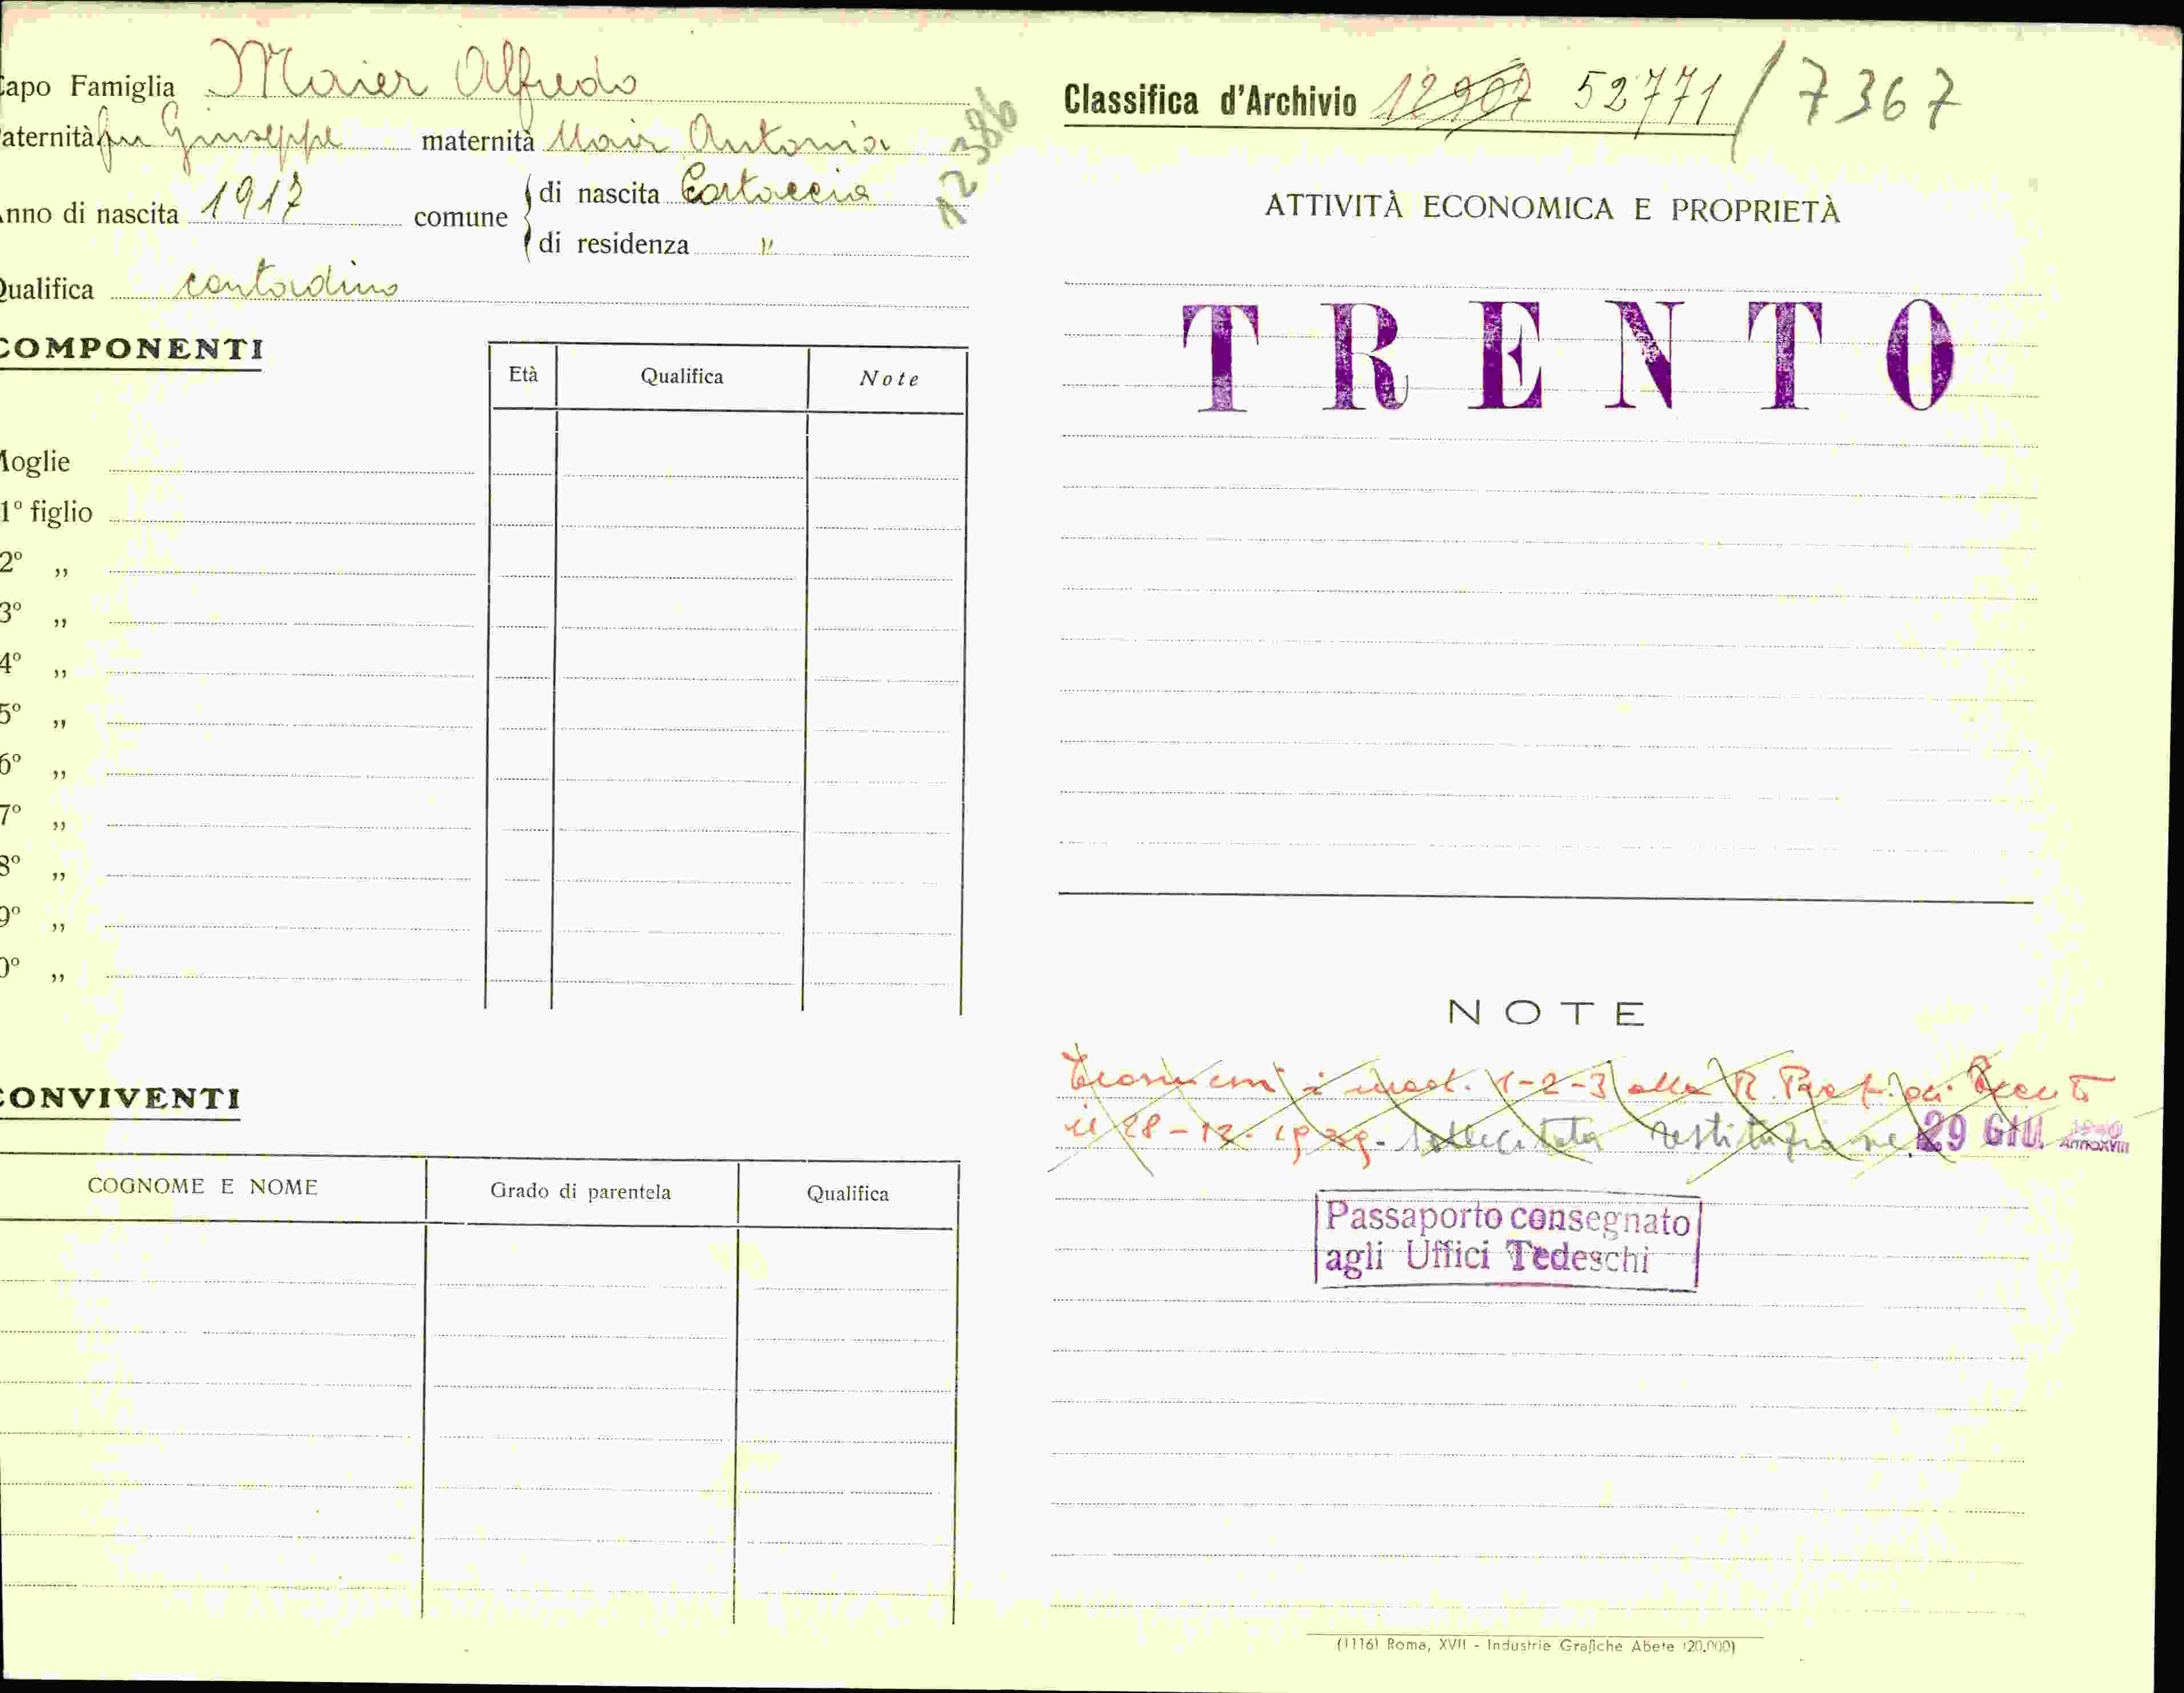 apo Famiglia Maier Alfredo
aternità fu Giuseppe maternità Mair Antonia
12386
nno di nascita 1917 comune di nascita Cortaccia
di residenza "
Qualifica contadino
COMPONENTI
Età Qualifica Note
Moglie
1º figlio
2º „
3º „
4º „
5º „
6º „
7º „
8º „
9º „
0º „
CONVIVENTI
COGNOME E NOME Grado di parentela Qualifica
Classifica d'Archivio 12907 52771/7367
ATTIVITÀ ECONOMICA E PROPRIETÀ
TRENTO
NOTE
Trasmessi i mod. 1-2-3 alla R. Pref. di Trento
il 28-12-1939- sollecitata restituzione 29 GIU. 1940 Anno XVIII
Passaporto consegnato
agli Uffici Tedeschi
(1116) Roma, XVII - Industrie Grafiche Abete (20.000)